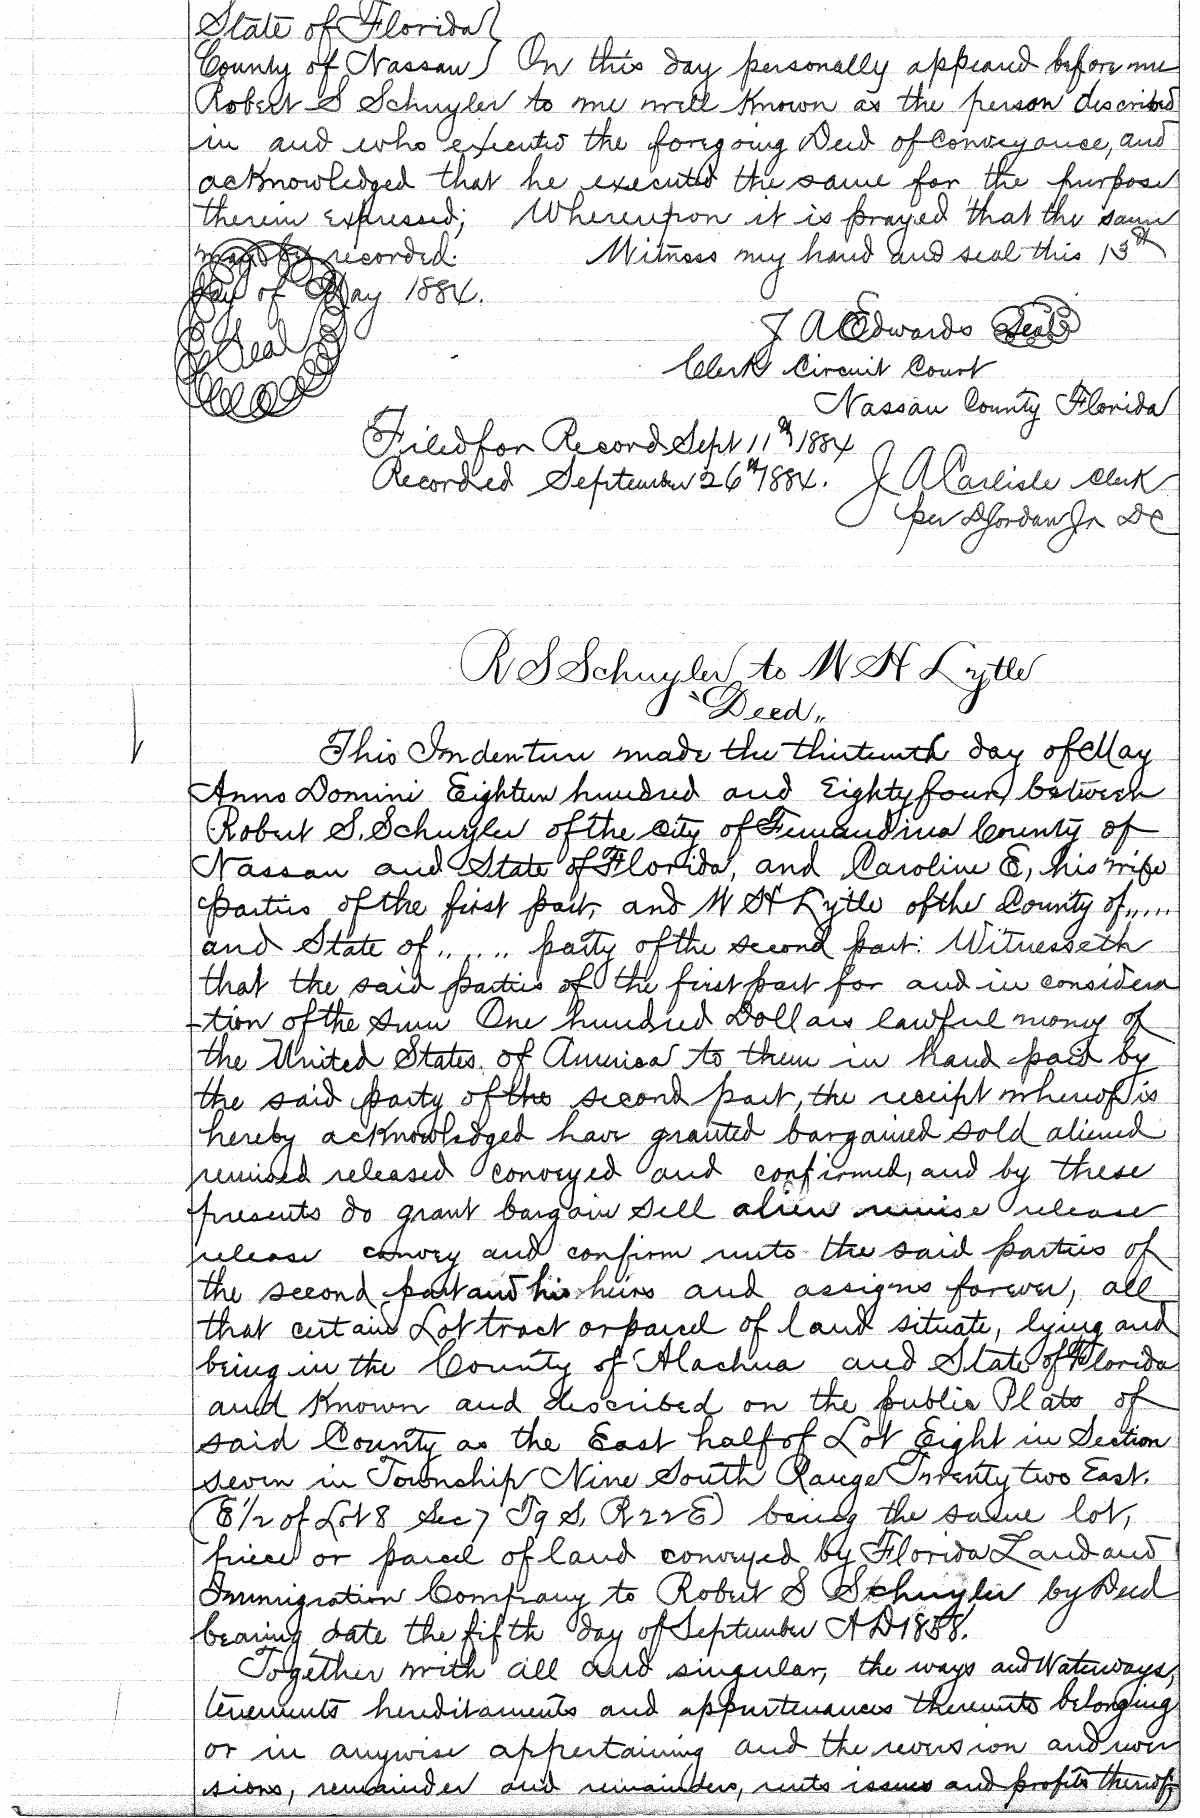 State of Florida }
County of Nassau } On this day personally appeared before me
Robert S Schuyler to me well known as the person described
in and who executed the foregoing Deed of Conveyance, and
acknowledged that he executed the same for the purpose
therein expressed; Whereupon it is prayed that the same
may be recorded. Witness my hand and seal this 13th
day of May 1884.
Seal
J A Edwards Seal
Clerk Circuit Court
Nassau County Florida
Filed for Record Sept 11th 1884
Recorded September 26th 1884. J A Carlisle Clerk
per D Jordan Jr DC
R S Schuyler to W H Lytle
"Deed"
This Indenture made the thirteenth day of May
Anno Domini Eighteen hundred and Eighty four between
Robert S. Schuyler of the city of Fernandina County of
Nassau and State of Florida, and Caroline E, his wife
parties of the first part, and W H Lytle of the County of .....
and State of ...... party of the second part: Witnesseth
that the said parties of the first part for and in considera
-tion of the sum One hundred Dollars lawful money of
the United States of America to them in hand paid by
the said party of the second part, the receipt whereof is
hereby acknowledged have granted bargained sold aliened
remised released conveyed and confirmed, and by these
presents do grant bargain sell alien remise release
release convey and confirm unto the said parties of
the second part and his heirs and assigns forever, all
that certain Lot tract or parcel of land situate, lying and
being in the County of Alachua and State of Florida
and known and described on the public Plats of
said County as the East half of Lot Eight in Section
seven in Township Nine South Range Twenty two East.
(E 1/2 of Lot 8 Sec 7 T 9 S, R 22 E) being the same lot,
piece or parcel of land conveyed by Florida Land and
Immigration Company to Robert S Schuyler by Deed
bearing date the fifth day of September A D
Together with all and singular, the ways and Waterways,
tenements hereditaments and appurtenances thereunto belonging
or in anywise appertaining and the reversion and rever
sions, remainder and remainders, rents issues and profits thereof,